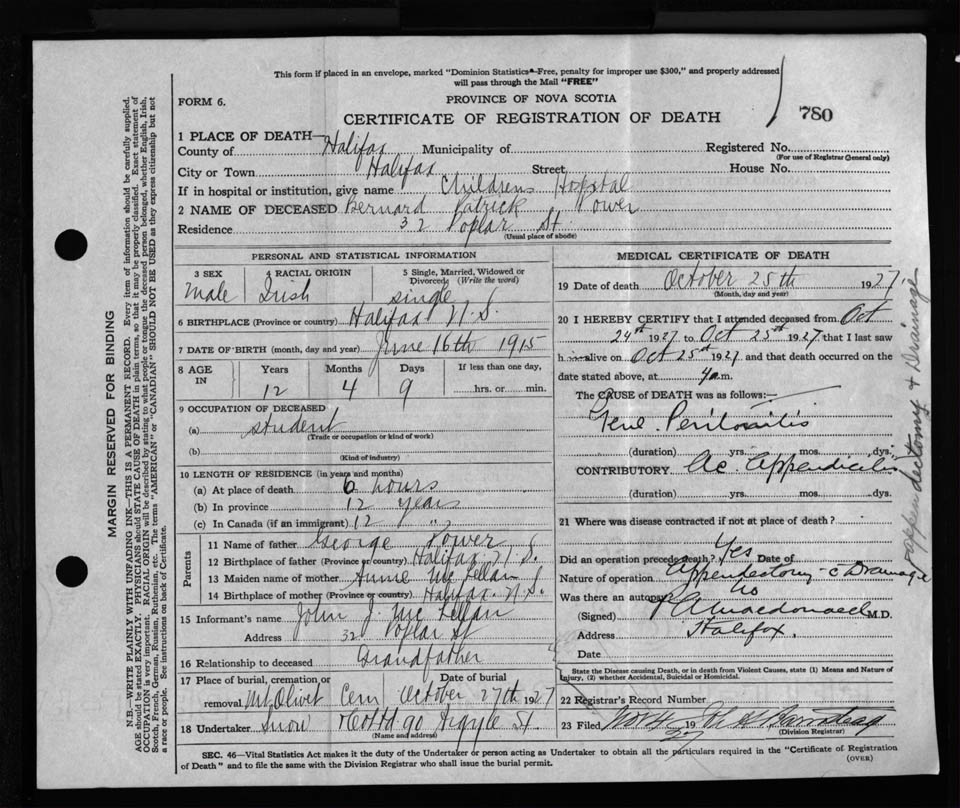 This form if placed in an envelope, marked "Dominion Statistics—Free, penalty for improper use $300," and properly addressed
will pass through the Mail "FREE"
FORM 6.
PROVINCE OF NOVA SCOTIA
CERTIFICATE OF REGISTRATION OF DEATH
780
1 PLACE OF DEATH—
County of Halifax Municipality of Registered No.
(For use of Registrar General only)
City or Town Halifax Street House No.
If in hospital or institution, give name Childrens Hospital
2 NAME OF DECEASED Bernard Patrick Power
Residence 32 Poplar St.
(Usual place of abode)
PERSONAL AND STATISTICAL INFORMATION
3 SEX 4 RACIAL ORIGIN 5 Single, Married, Widowed or Divorced (Write the word)
Male Irish single
6 BIRTHPLACE (Province or country) Halifax N.S.
7 DATE OF BIRTH (month, day and year) June 16th 1915
8 AGE IN Years Months Days If less than one day,
12 4 9 hrs. or min.
9 OCCUPATION OF DECEASED
(a) student
(Trade or occupation or kind of work)
(b)
(Kind of industry)
10 LENGTH OF RESIDENCE (in years and months)
(a) At place of death 6 hours
(b) In province 12 years
(c) In Canada (if an immigrant) 12 "
Parents
11 Name of father George Power
12 Birthplace of father (Province or country) Halifax N.S.
13 Maiden name of mother Annie McLellan
14 Birthplace of mother (Province or country) Halifax N.S.
15 Informant's name John J. McLellan
Address 32 Poplar St
16 Relationship to deceased Grandfather
17 Place of burial, cremation or removal Date of burial
Mt Olivet Cem October 27th 1927
18 Undertaker Snow 90 Argyle St.
(Name and address)
MEDICAL CERTIFICATE OF DEATH
19 Date of death October 25th 1927
(Month, day and year)
20 I HEREBY CERTIFY that I attended deceased from Oct
24th 1927 to Oct 25th 1927 that I last saw
h alive on Oct 25th 1927 and that death occurred on the
date stated above, at 4 a.m.
The CAUSE of DEATH was as follows:—
Genl. Peritonitis
(duration) yrs. mos. dys.
CONTRIBUTORY Ac. Appendicitis
(duration) yrs. mos. dys.
21 Where was disease contracted if not at place of death?
Did an operation precede death? Yes Date of
Nature of operation Appendectomy c Drainage
Was there an autopsy? No
(Signed) Macdonald M.D.
Address Halifax.
Date
State the Disease causing Death, or in death from Violent Causes, state (1) Means and Nature of
Injury, (2) whether Accidental, Suicidal or Homicidal.
22 Registrar's Record Number
23 Filed Nov 1927
(Division Registrar)
appendectomy & Drainage
SEC. 46—Vital Statistics Act makes it the duty of the Undertaker or person acting as Undertaker to obtain all the particulars required in the "Certificate of Registration
of Death" and to file the same with the Division Registrar who shall issue the burial permit.
(OVER)
MARGIN RESERVED FOR BINDING
N.B.—WRITE PLAINLY WITH UNFADING INK—THIS IS A PERMANENT RECORD. Every item of information should be carefully supplied.
AGE should be stated EXACTLY. PHYSICIANS should STATE CAUSE OF DEATH in plain terms, so that it may be properly classified. Exact statement of
OCCUPATION is very important. RACIAL ORIGIN will be described by stating to what people or tongue the deceased person belonged, whether English, Irish,
Scotch, French, German, Russian, Ruthenian, etc. The terms "AMERICAN" or "CANADIAN" SHOULD NOT BE USED as they express citizenship but not
a race or people. See instructions on back of Certificate.